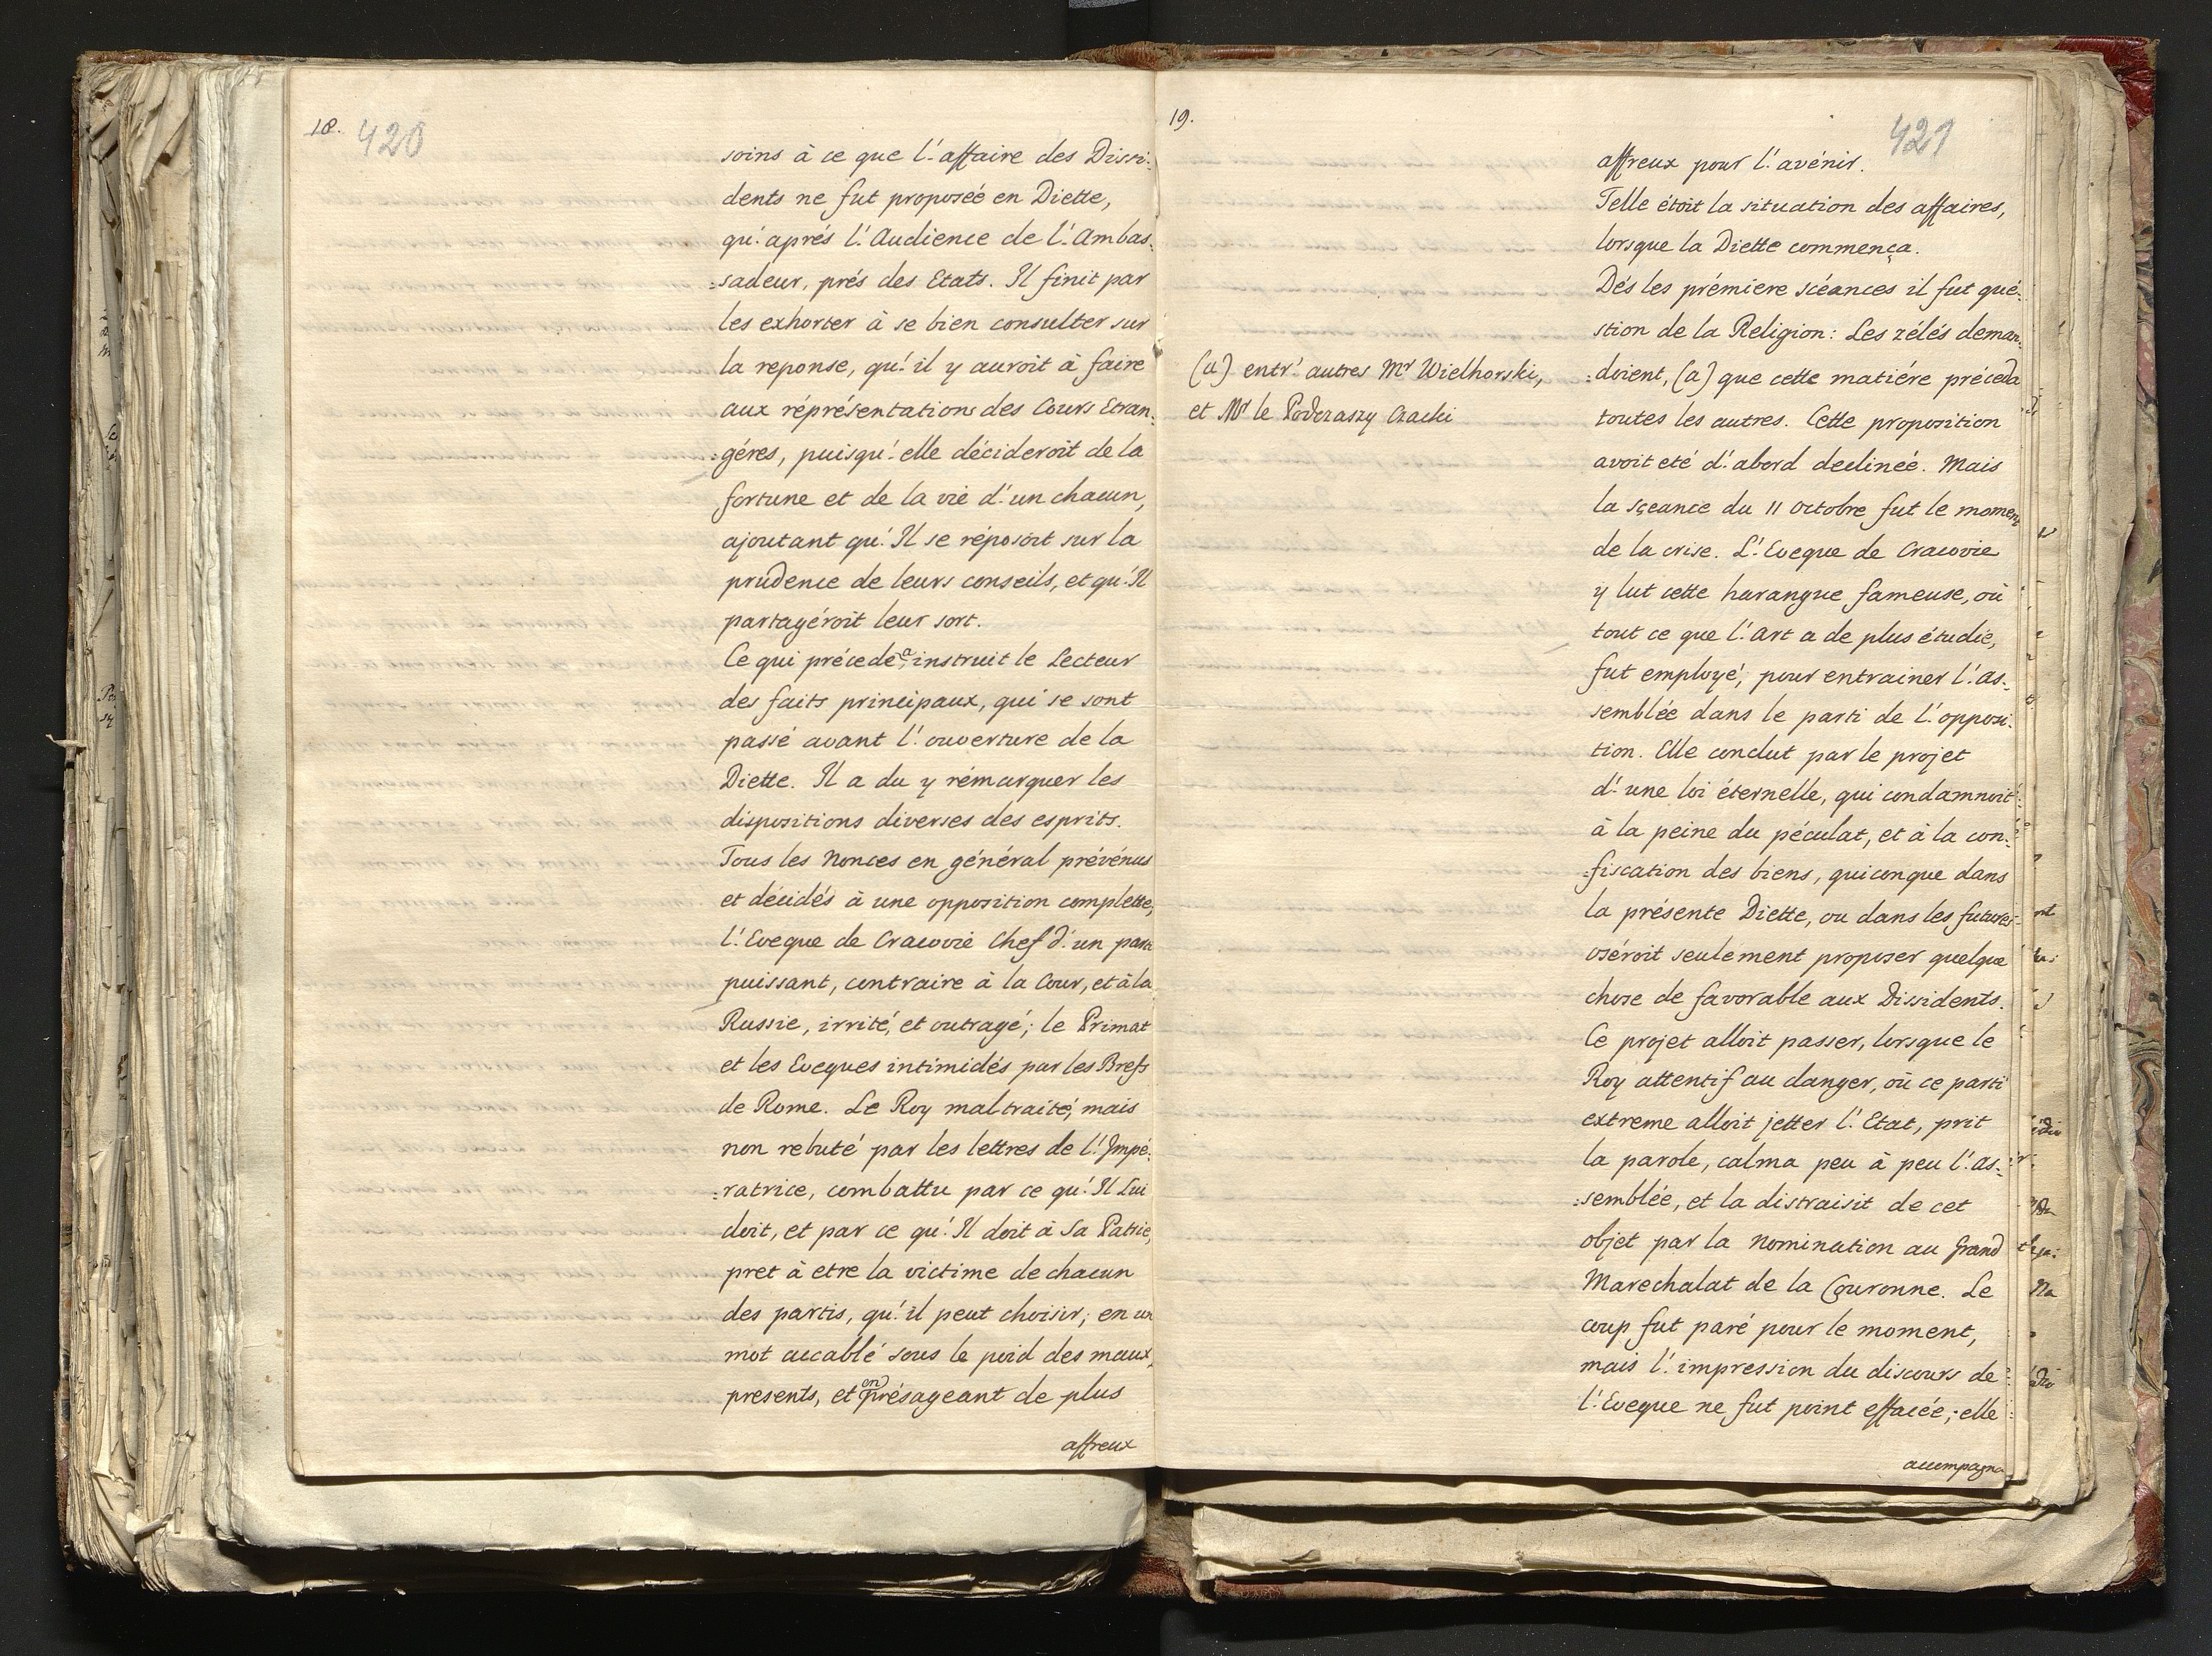 18. 420
soins à ce que l'affaire des Dissi:
dents ne fut proposée en Diette,
qu'aprés l'Audience de l'Ambas:
:sadeur, prés des Etats. Il finit par
les exhorter à se bien consulter sur
la reponse, qu'il y auroit à faire
aux réprésentations des Cours Etran:
:géres, puisqu'elle décideroit de la
fortune et de la vie d'un chacun,
ajoutant qu'Il se réposoit sur la
prudence de leurs conseils, et qu'Il
partagéroit leur sort.
Ce qui précede a instruit le Lecteur
des faits principaux, qui se sont
passé avant l'ouverture de la
Diette. Il a du y rémarquer les
dispositions diverses des esprits.
Tous les Nonces en général prévénus
et décidés à une opposition complette,
l'Eveque de Cracovie Chef d'un parti
puissant, contraire à la Cour, et à la
Russie, irrité, et outragé; le Primat
et les Eveques intimidés par les Brefs
de Rome. Le Roy maltraité, mais
non rebuté par les lettres de l'Impé:
:ratrice, combattu par ce qu'Il Lui
doit, et par ce qu'Il doit à Sa Patrie,
pret à etre la victime de chacun
des partis, qu'il peut choisir; en un
mot accablé sous le poid des maux
presents, et en présageant de plus
affreux
19. 421
affreux pour l'avénir.
Telle étoit la situation des affaires,
lorsque la Diette commença.
Dés les prémiere scéances il fut qué:
stion de la Religion: Les zélés deman:
:doient, (a) que cette matiére préceda
toutes les autres. Cette proposition
avoit eté d'abord declinée. Mais
la sçeance du 11 Octobre fut le moment
de la crise. L'Eveque de Cracovie
y lut cette harangue fameuse, où
tout ce que l'Art a de plus étudie,
fut employé, pour entrainer l'As:
semblée dans le parti de l'opposi:
tion. Elle conclut par le projet
d'une loi éternelle, qui condamnoit
à la peine du péculat, et à la con:
:fiscation des biens, quiconque dans
la présente Diette, ou dans les futures
oséroit seulement proposer quelque
chose de favorable aux Dissidents.
Ce projet alloit passer, lorsque le
Roy attentif au danger, où ce parti
extreme alloit jetter l'Etat, prit
la parole, calma peu à peu l'As:
:semblée, et la distraisit de cet
objet par la nomination au Grand
Marechalat de la Couronne. Le
coup fut paré pour le moment,
mais l'impression du discours de
l'Eveque ne fut point effacée; elle
accompagna
(a) entr'autres Mr Wielhorski,
et Mr le Podczaszy Czacki